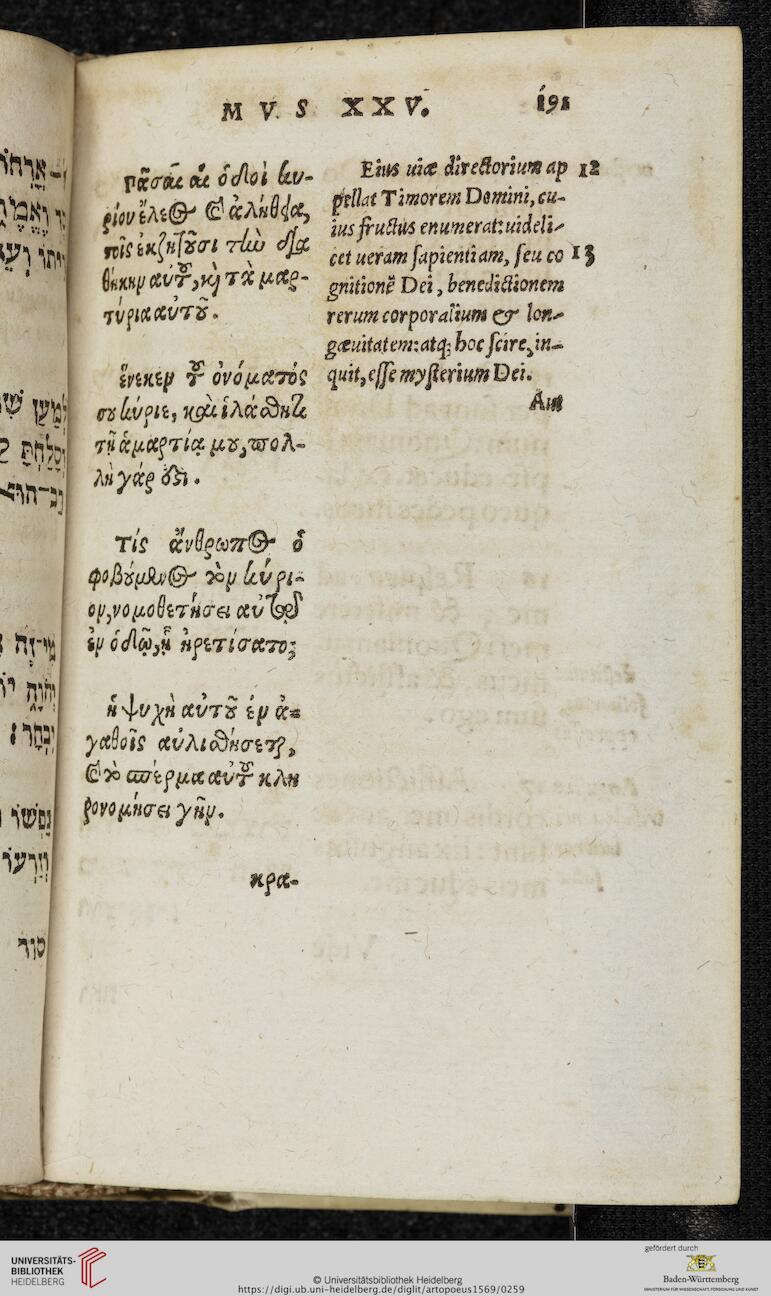 MVS XXV. 191
πᾶσαι αἱ ὁδοὶ κυ-
ρίου ἔλεος καὶ ἀλήθεια,
τοῖς ἐκζητοῦσι τὴν δια
θήκην αὐτοῦ, καὶ τὰ μαρ-
τύρια αὐτοῦ.
ἕνεκεν τοῦ ὀνόματός
σου κύριε, καὶ ἱλάσθητι
τῇ ἁμαρτίᾳ μου, πολ-
λὴ γάρ ἐστι.
Τίς ἄνθρωπος ὁ
φοβούμενος τὸν κύρι-
ον, νομοθετήσει αὐτῷ
ἐν ὁδῷ, ᾗ ᾑρετίσατο;
ἡ ψυχὴ αὐτοῦ ἐν ἀ-
γαθοῖς αὐλισθήσεται,
καὶ τὸ σπέρμα αὐτοῦ κλη
ρονομήσει γῆν.
κρα-
Eius uiæ directorium ap 12
pellat Timorem Domini, cu-
ius fructus enumerat: uideli-
cet ueram sapientiam, seu co 13
gnitionẽ Dei, benedictionem
rerum corporalium & lon-
gæuitatem: atq; hoc scire, in-
quit, esse mysterium Dei.
Am
סוד
UNIVERSITÄTS-
BIBLIOTHEK
HEIDELBERG
© Universitätsbibliothek Heidelberg
https://digi.ub.uni-heidelberg.de/diglit/artopoeus1569/0259
gefördert durch
Baden-Württemberg
MINISTERIUM FÜR WISSENSCHAFT, FORSCHUNG UND KUNST